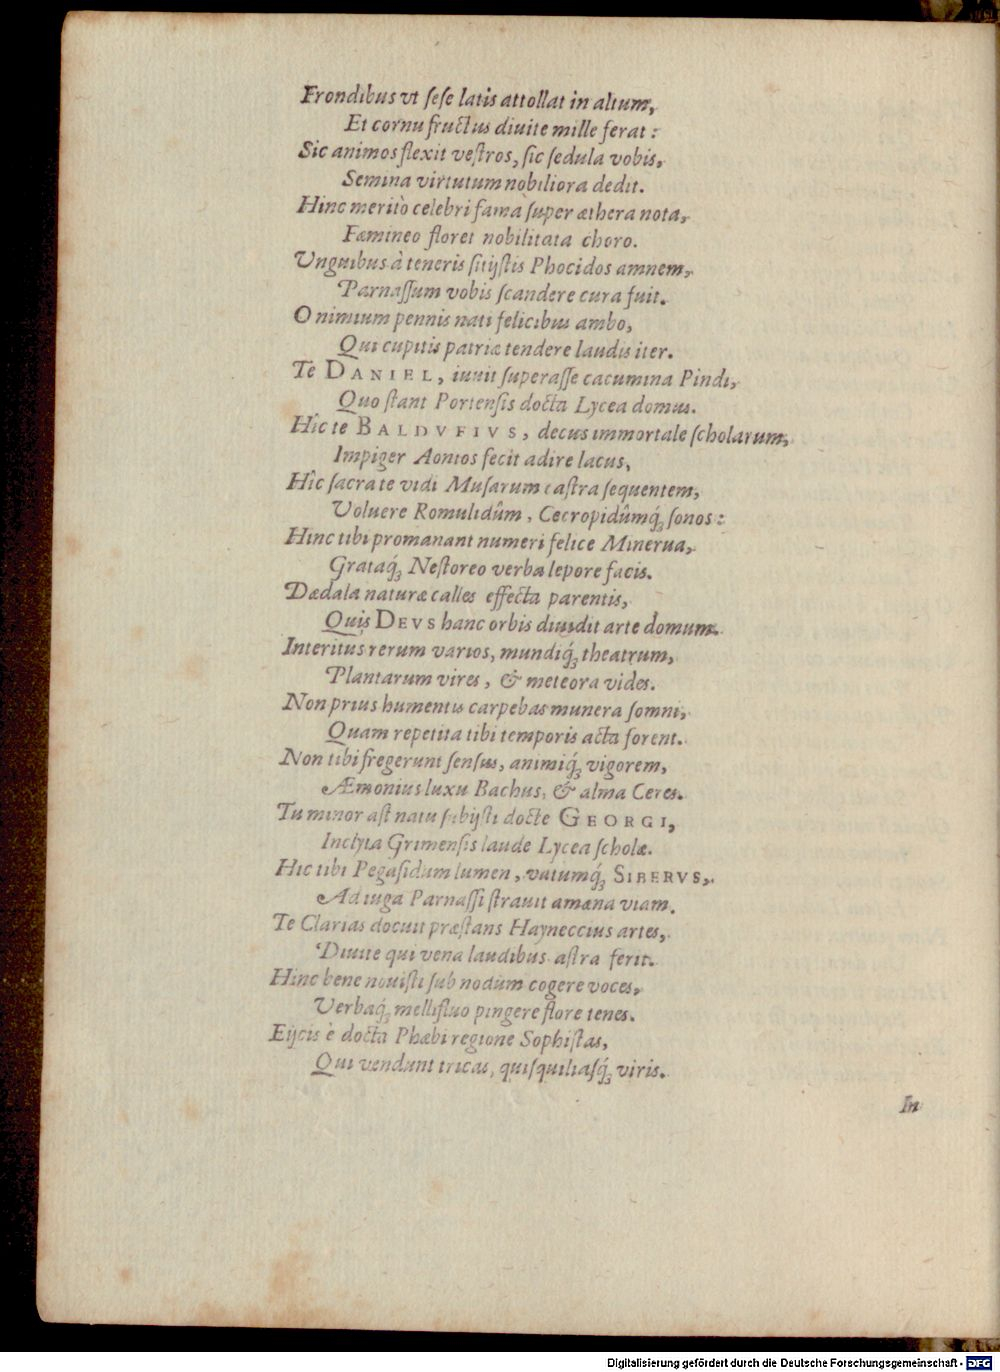 Frondibus vt ſeſe latis attollat in altum,
Et cornu fructus diuite mille ferat:
Sic animos flexit veſtros, ſic ſedula vobis,
Semina virtutum nobiliora dedit.
Hinc meritò celebri famà ſuper æthera nota,
Fœmineo floret nobilitata choro.
Vnguibus à teneris ſitijſtis Phocidos amnem,
Parnaſſum vobis ſcandere cura fuit.
O nimium pennis nati felicibus ambo,
Qui cupitis patriæ tendere laudis iter.
Te DANIEL, iuuit ſuperaſſe cacumina Pindi,
Quo ſtant Portenſis docta Lycea domus.
Hîc te BALDVFIVS, decus immortale ſcholarum,
Impiger Aonios fecit adire lacus,
Hîc ſacra te vidi Muſarum caſtra ſequentem,
Voluere Romulidûm, Cecropidûmq́; ſonos:
Hinc tibi promanant numeri felice Minerua,
Grataq́; Neſtoreo verba lepore facis.
Dædala naturæ calles effecta parentis,
Quis DEVS hanc orbis diuidit arte domum.
Interitus rerum varios, mundiq́; theatrum,
Plantarum vires, & meteora vides.
Non prius humentis carpebas munera ſomni,
Quam repetita tibi temporis acta forent.
Non tibi fregerunt ſenſus, animiq́; vigorem,
Æmonius luxu Bachus, & alma Ceres.
Tu minor aſt natu ſubijſti docte GEORGI,
Inclyta Grimenſis laude Lycea ſcholæ.
Hic tibi Pegaſidum lumen, vatumq́; SIBERVS,
Ad iuga Parnaſſi ſtrauit amœna viam.
Te Clarias docuit præſtans Hayneccius artes,
Diuite qui vena laudibus aſtra ferit.
Hinc bene nouiſti ſub nodum cogere voces,
Verbaq́; mellifluo pingere flore tenes.
Eijcis è docta Phœbi regione Sophiſtas,
Qui vendunt tricas, quiſquiliaſq́; viris.
In
Digitalisierung gefördert durch die Deutsche Forschungsgemeinschaft - DFG